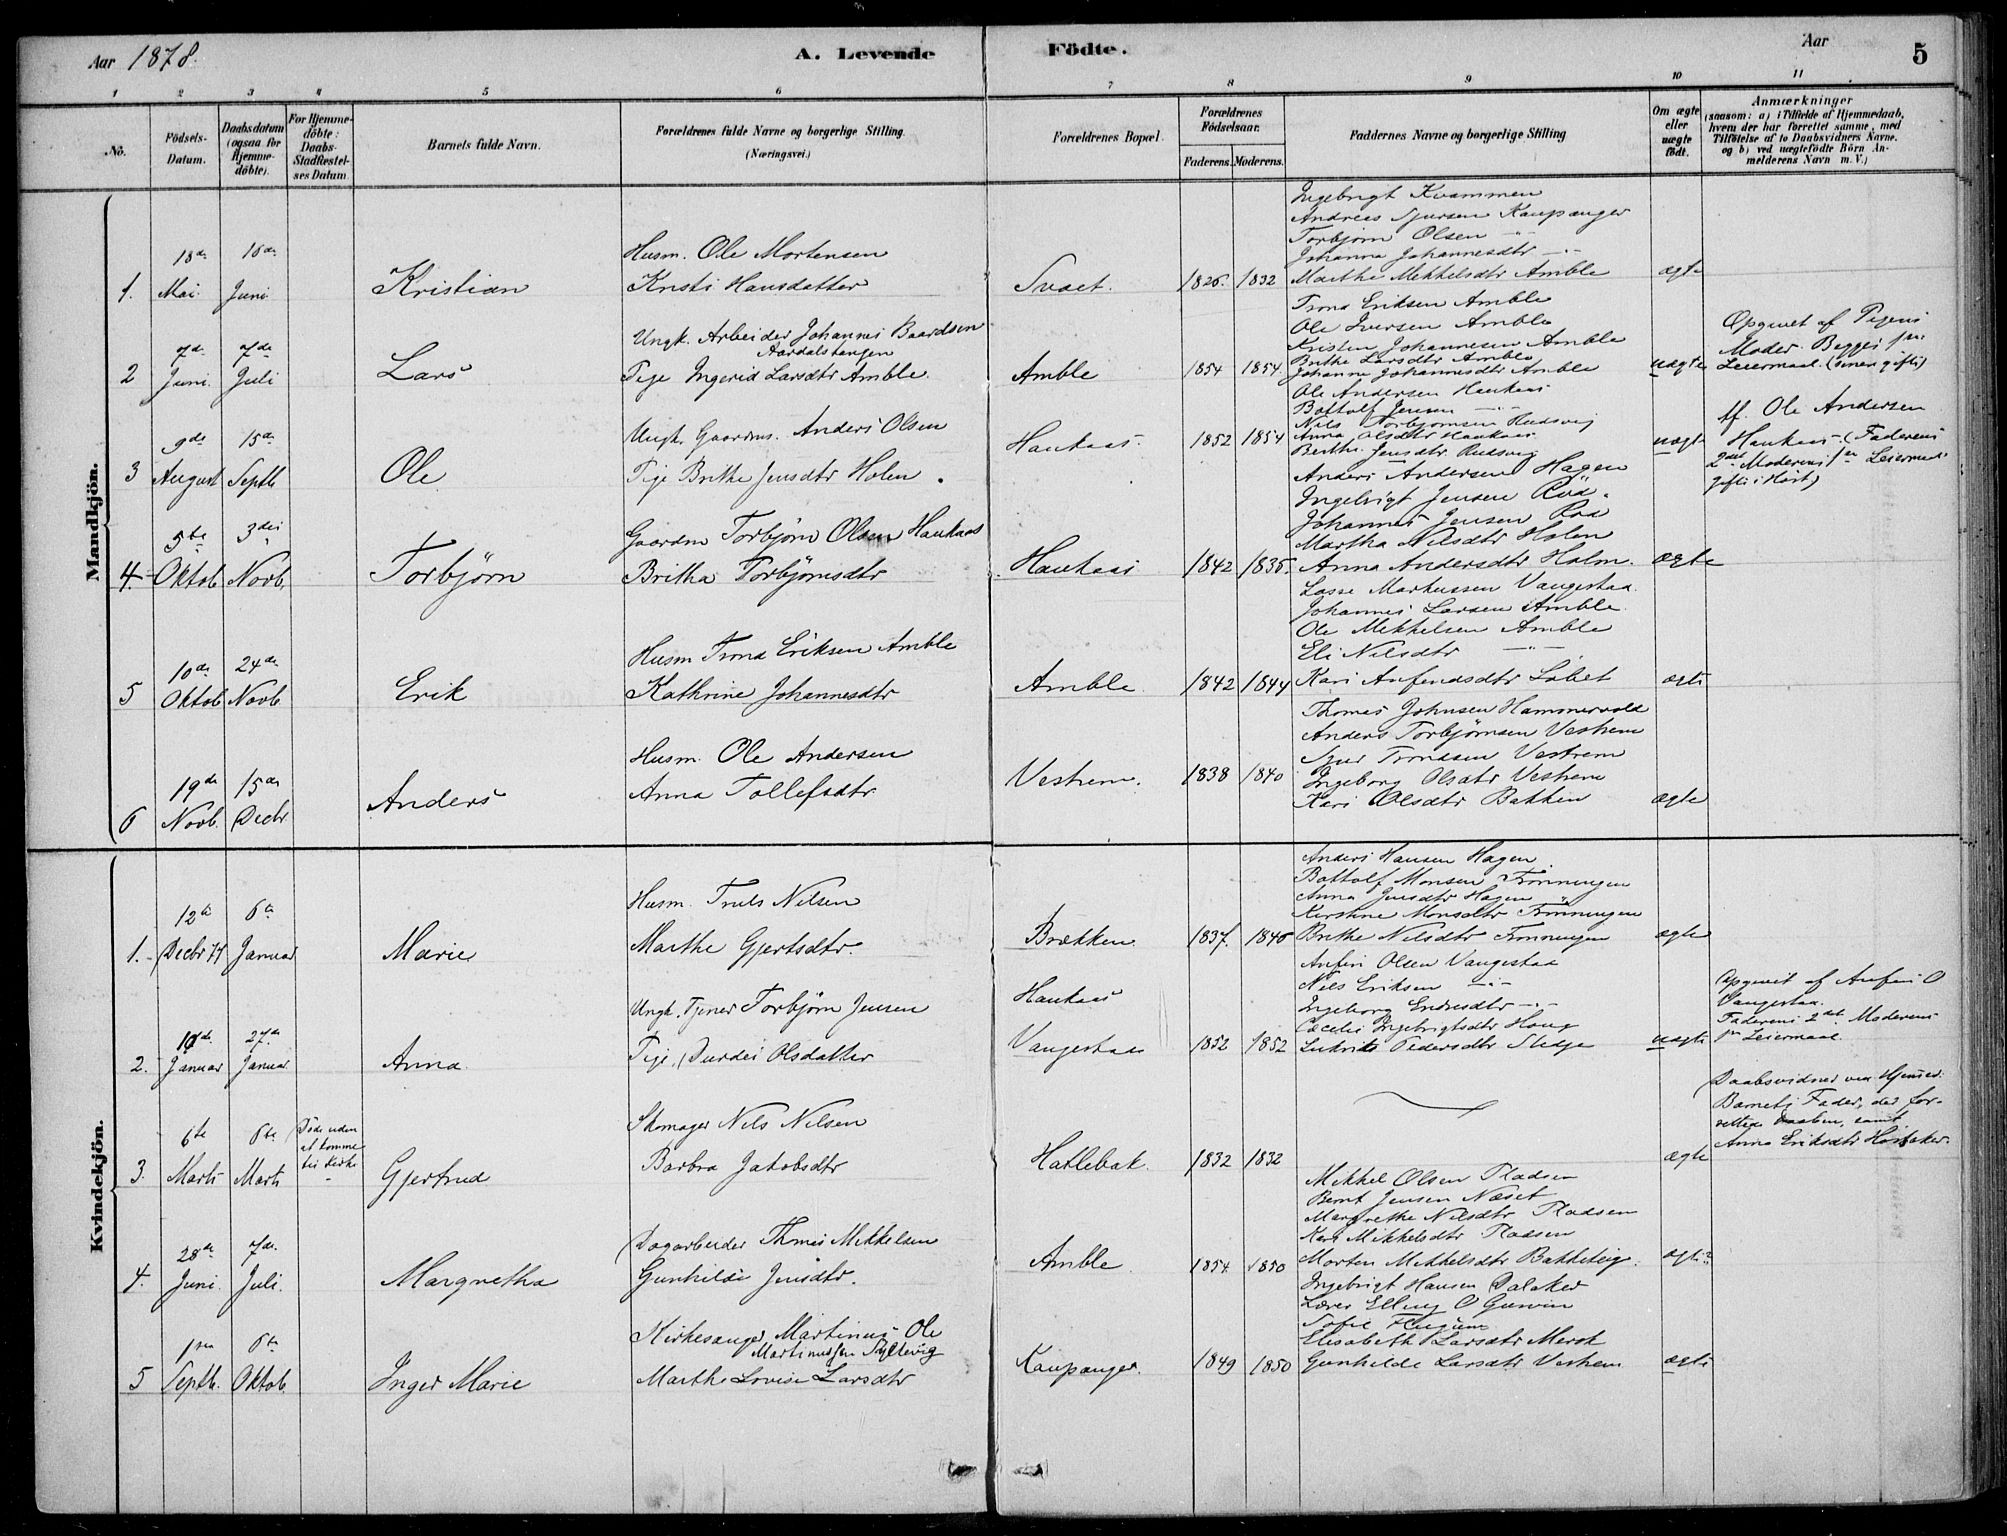 Aar 1878. A. Levende Födte. Aar 5
1 2 3 4 5 6 7 8 9 10 11
No. Födsels-Datum. Daabsdatum (ogsaa for Hjemmedöbte). For Hjemmedöbte: Daabs-Stadfæstelses Datum Barnets fulde Navn. Forældrenes fulde Navne og borgerlige Stilling. (Næringsvei.) Forældrenes Bopæl. Forældrenes Födselsaar. Faderens. Moderens. Faddernes Navne og borgerlige Stilling Om ægte eller uægte födt. Anmærkninger (saasom: a) i Tilfælde af Hjemmedaab, hvem der har forrettet samme, med Tilföielse af to Daabsvidners Navne. og b) ved uægtefödte Börn Anmelderens Navn m. V.)
Mandkjön.
Ingebrigt Kvammen
Andreas Sjursen Kaupanger
Torbjørn Olsen -"-
18de 16de Husm. Ole Mortensen Johanna Johannesdtr -"-
1. Mai Juni Kristian Kristi Hansdatter Svaet. 1826. 1832 Marthe Mikkelsdtr Amble ægte
Trond Eriksen Amble
Ole Iversen Amble
Ungk. Arbeider Johannes Baardsen Kristen Johannesen Amble Opgivet af Pigens
7de 7de Aardalstangen Brithe Larsdtr Amble Moder. Begges 1ste
2 Juni Juli Lars Pige Ingerid Larsdtr Amble. Amble 1854 1854. Johanne Johannesdtr Amble uægte Leiermaal. (senere gifte)
Ole Andersen Haukaas
Bottolf Jensen -"-
9de 15de Ungk. Gaardms. Anders Olsen Nils Torbjørnsen Rudsvig Af. Ole Andersen
Haukaas 1852 1854 Anna Olsdtr Haukaas uægte Haukaas (Faderens
3 August Septb Ole Pige Brithe Jensdtr Holen. Berthe Jensdtr Rudsvig 2det Moderens 1ste Leiermaal
Anders Andersen Hagen gifte i Høst)
Ingebrigt Jensen Røa.
Johannes Jensen Røa
5te 3die Gaardm Torbjørn Olsen Haukaas Martha Nilsdtr Holen
4. Oktob Novb. Torbjørn Britha Torbjørnsdtr Haukaas 1842 1835. Anna Andersdtr Holm. ægte
Lasse Markussen Vangestaa
Johannes Larsen Amble.
Ole Mikkelsen Amble
10de 24de Husm Trond Eriksen Amble Eli Nilsdtr -"-
5 Oktob Novb. Erik Kathrine Johannesdtr Amble. 1842 1844 Kari Anfindsdtr Løbet ægte
Thomas Johnsen Hammervold
Anders Torbjørnsen Vestrem
Husm. Ole Andersen Sjur Trondsen Vestrem
19de 15de Anna Tollefsdtr Vestrem. 1838 1840 Ingeborg Olsdtr Vestrem
6 Novb. Decbr Anders Kari Olsdtr Bakken ægte
Kvindekjön.
Anders Hansen Hagen
Bottolf Monsen Frønningen
Anna Jensdtr Hagen
12te 6te Husm. Truls Nilsen Kirstine Monsdtr Frønningen
1. Decbr 77 Januar Marie Marthe Gjertsdtr. Brækken 1837. 1846 Brithe Nilsdtr Frønningen ægte
Anfin Olsen Vangestaa
Nils Eriksen -"- Opgivet af Anfin O
Ungk. Tjener Torbjørn Jensen Haukaas Ingeborg Endresdtr -"- Vangestaa.
10de 27de Cecelie Ingebrigtsdtr Haug Faderens 2det Moderens
2. Januar Januar Anna. Pige, Durdei Olsdatter Vangestaa 1852 1852 Lukris Pedersdtr Slidje uægte 1ste Leiermaal
Daabsvidner ved Hjemmed.
6te 6te Døde uden Skomager Nils Nilsen Barnets Fader, der for-
at komme rettede Daaben, samt
3. Marts Marts til kirke Gjertrud Barbra Jakobsdtr Hatlebak 1832 1832 ægte Anna Eriksdtr Høibaker.
Mikkel Olsen Pladsen
Bernt Jensen Næset
Margrethe Nilsdtr Pladsen
28de 7de Dagarbeider Thomas Mikkelsen Kari Mikkelsdtr Pladsen
4. Juni. Juli. Margretha Gunhilde Jensdtr. Amble. 1854. 1850 Morten Mikkelsdtr Bakketeig. ægte
Ingebrigt Hansen Dalaker
Lærer Elling O Gurvin
1ste 6te Kirkesanger Martinus Ole Sofie Husum
Martinussen Syltevig Elisabeth Larsdtr Merok
5 Septb. Oktob. Inger Marie Marthe Lovise Larsdtr Kaupanger. 1849 1850 Gunhilde Larsdtr Vestrem ægte